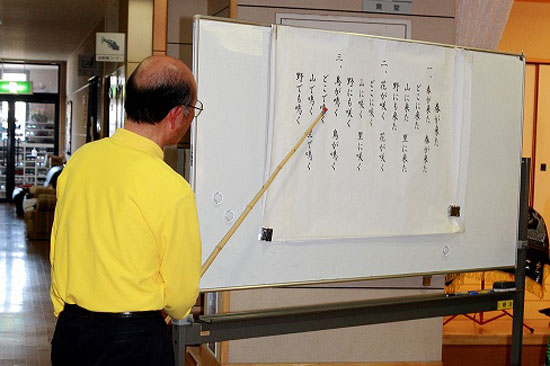 春が来た
一、春が来た 春が来た
どこに来た
山に来た 里に来た
野にも来た
二、花が咲く 花が咲く
どこに咲く
山に咲く 里に咲く
野にも咲く
三、鳥が鳴く 鳥が鳴く
どこで鳴く
山で鳴く 里で鳴く
野でも鳴く